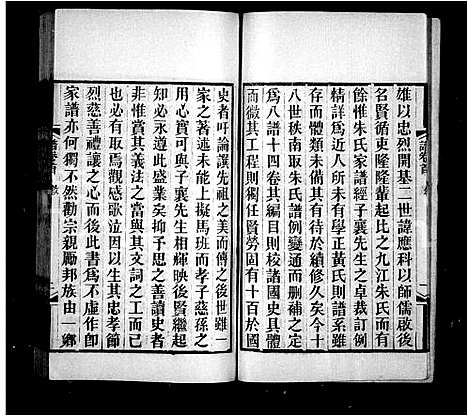 雄以忠烈開基二世諱應科以師儒啟後
名賢循吏隆隆輩起比之九江朱氏而有
餘惟朱氏家譜經子襄先生之卓裁訂例
精詳為近人所未有學正黃氏則譜系雖
存而體類未備其有待於續修久矣今十
八世秩南取朱氏譜例變通而刪補之
為八譜十四卷其編目則校諸國史具體
而微其工程則獨任賢勞固有十百於國
史者吁論譔先祖之美而傳之後世雖一
家之著述未能上擬馬班而孝子慈孫之
用心實可與子襄先生相輝映後賢繼起
知必永迪此盛業矣抑予思之善讀史者
非惟賞其義法之當與其文詞之工而已
也必有取焉觀感歌泣因以生其忠孝節
烈慈善禮讓之心而此書為不虛作即
家譜亦何獨不然勸宗親勵邦族由一鄉
譜卷首
敘
一
譜卷首
敘
二